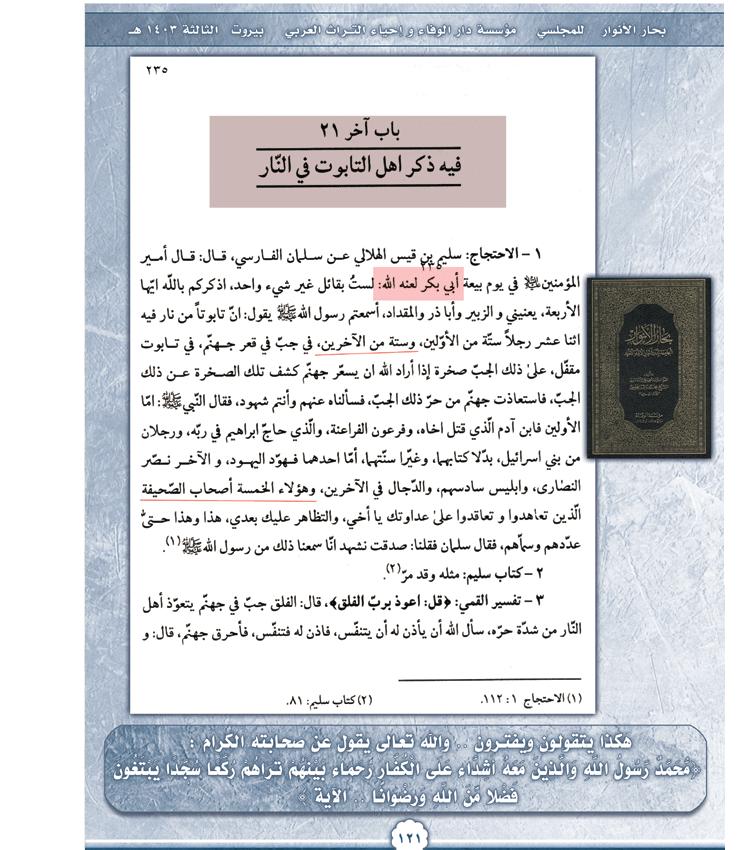 بحار الأنوار للمجلسي مؤسسة دار الوفاء و إحياء التراث العربي بيروت الثالثة ١٤٠٣ هـ
٢٣٥
باب آخر ٢١
فيه ذكر اهل التابوت في النّار
١ - الاحتجاج: سليم بن قيس الهلالي عن سلمان الفارسي، قال: قال أمير
٢٣٥
المؤمنين ﷺ في يوم بيعة أبي بكر لعنه الله: لستُ بقائل غير شيء واحد، اذكركم باللّه ايّها
الأربعة، يعنيني و الزبير وأبا ذر والمقداد، أسمعتم رسول الله ﷺ يقول: انّ تابوتاً من نار فيه
اثنا عشر رجلاً ستّة من الأوّلين، وستة من الآخرين، في جبّ في قعر جهنّم، في تابوت
مقفّل، علىٰ ذلك الجبّ صخرة إذا أراد الله ان يسعّر جهنّم كشف تلك الصخرة عن ذلك
الجبّ، فاستعاذت جهنّم من حرّ ذلك الجبّ، فسألناه عنهم وأنتم شهود، فقال النّبي ﷺ: امّا
الأولين فابن آدم الّذي قتل اخاه، وفرعون الفراعنة، والّذي حاجّ ابراهيم في ربّه، ورجلان
من بني اسرائيل، بدّلا كتابهما، وغيّرا سنّتهما، أمّا احدهما فـهوّد اليهود، و الآخر نـصّر
النصارى، وابليس سادسهم، والدّجال في الآخرين، وهؤلاء الخمسة أصحاب الصّحيفة
الّذين تعاهدوا و تعاقدوا علىٰ عداوتك يا أخي، والتظاهر عليك بعدي، هذا وهذا حـتىٰ
عدّدهم وسمّاهم، فقال سلمان فقلنا: صدقت نشهد انّا سمعنا ذلك من رسول الله ﷺ(١).
٢ - كتاب سليم: مثله وقد مرّ(٢).
٣ - تفسير القمي: ﴿قل: اعوذ بربّ الفلق﴾، قال: الفلق جبّ في جهنّم يتعوّذ أهل
النّار من شدّة حرّه، سأل الله أن يأذن له أن يتنفّس، فاذن له فتنفّس، فأحرق جهنّم، قال: و
(١) الاحتجاج ١ : ١١٢. (٢) كتاب سليم: ٨١.
هكذا يتقولون ويفترون .. والله تعالى يقول عن صحابته الكرام :
﴿مُحَمَّدٌ رَسُولُ اللَّهِ وَالَّذِينَ مَعَهُ أَشِدَّاءُ عَلَى الْكُفَّارِ رُحَمَاءُ بَيْنَهُمْ تَرَاهُمْ رُكَّعًا سُجَّدًا يَبْتَغُونَ
فَضْلًا مِّنَ اللَّهِ وَرِضْوَانًا .. الآية ﴾
١٢١